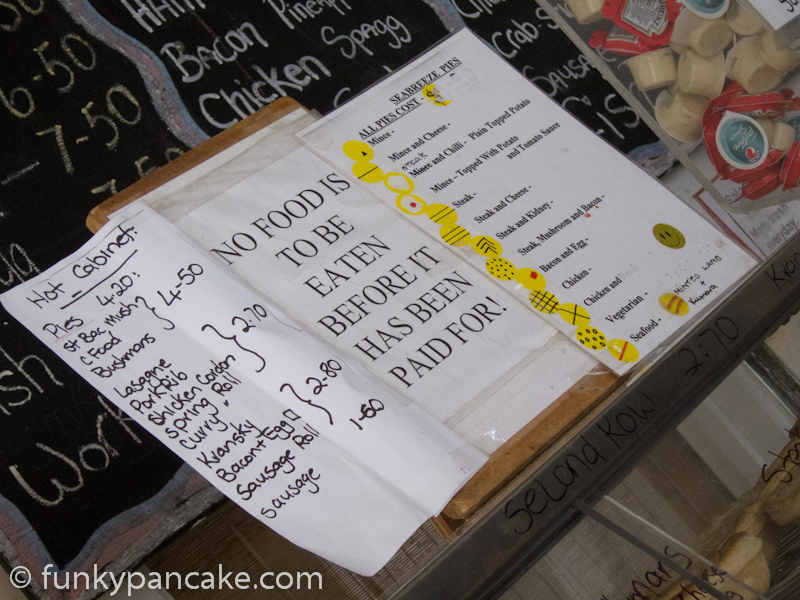 6-50
7-50
7-50
HAM
Bacon
Chicken
Pineapp
Spagg
Crab
Sausage
Work
Hot Cabinet
Pies 4-20:
St Bac Mush
C Food
Bushmans
4-50
Lasagne
Pork Rib
Chicken Cordon
Spring Roll
Curry "
2-70
Kransky
Bacon + Egg
Sausage Roll
2-80
Sausage
1-60
NO FOOD IS
TO BE
EATEN
BEFORE IT
HAS BEEN
PAID FOR!
SEABREEZE PIES
ALL PIES COST -
Mince -
Mince and Cheese -
Mince and Chilli - Plain Topped Potato
steak
Mince - Topped With Potato
and Tomato Sauce
Steak -
Steak and Cheese -
Steak and Kidney -
Steak, Mushroom and Bacon -
Bacon and Egg -
Chicken -
Chicken and
Vegetarian -
Seafood -
MINTED LAMB
Kumara
everyday
Second Row 2-70
© funkypancake.com